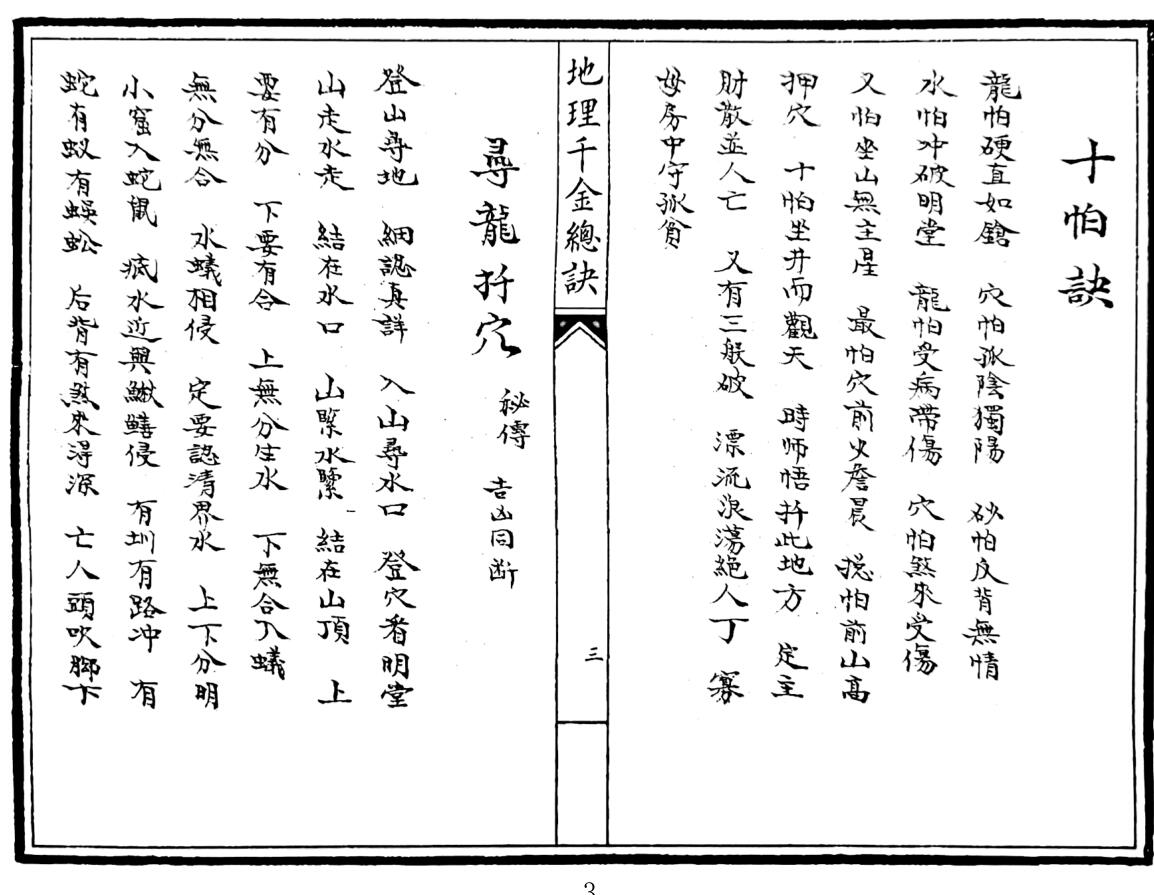 十怕訣
龍怕硬直如鎗 穴怕孤陰獨陽 砂怕反背無情
水怕冲破明堂 龍怕受病帶傷 穴怕煞來受傷
又怕坐山無主星 最怕穴前火詹晨 摠怕前山高
押穴 十怕坐井而觀天 時师悟扦此地方 定主
財散並人亡 又有三般破 漂流浪蕩絕人丁 寡
母房中守孤貧
地理千金總訣
三
尋龍扦穴 秘傳 吉凶同断
登山尋地 細認真詳 入山尋水口 登穴看明堂
山走水走 結在水口 山緊水緊 結在山頂 上
要有分 下要有合 上無分生水 下無合入蟻
無分無合 水蟻相侵 定要認清界水 上下分明
小窟入蛇鼠 疯水近興鰍鱔侵 有圳有路冲 有
蛇有蚁有蜈蚣 后背有煞來得深 亡人頭吹脚下
3